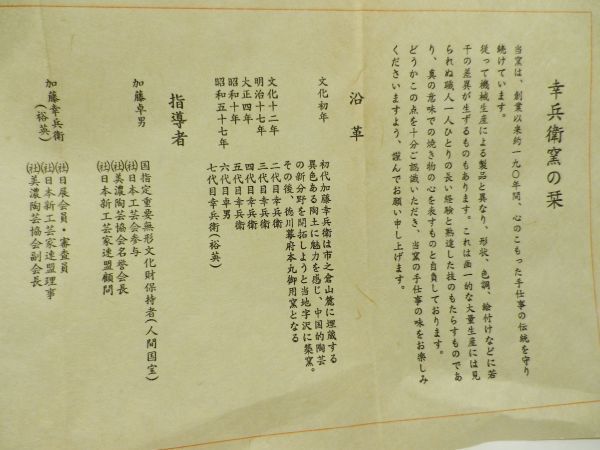 幸兵衛窯の栞
当窯は、創業以来約一九〇年間、心のこもった手仕事の伝統を守り
続けています。
従って機械生産による製品と異なり、形状、色調、絵付けなどに若
干の差異が生ずるものもあります。これは画一的な大量生産には見
られぬ職人一人ひとりの長い経験と熟達した技のもたらすものであ
り、真の意味での焼き物の心を表すものと自負しております。
どうかこの点を十分ご認識いただき、当窯の手仕事の味をお楽しみ
くださいますよう、謹んでお願い申し上げます。
沿革
文化初年 初代加藤幸兵衛は市之倉山麓に埋蔵する
異色ある陶土に魅力を感じ、中国的陶芸
の新分野を開拓しようと当地字沢に築窯。
その後、徳川幕府本丸御用窯となる
文化十二年 二代目幸兵衛
明治十七年 三代目幸兵衛
大正四年 四代目幸兵衛
昭和十年 五代目幸兵衛
六代目卓男
昭和五十七年 七代目幸兵衛(裕英)
指導者
加藤卓男 国指定重要無形文化財保持者(人間国宝)
(社)日本工芸会参与
(社)美濃陶芸協会名誉会長
(社)日本新工芸家連盟顧問
加藤幸兵衛
(裕英)
(社)日展会員・審査員
(社)日本新工芸家連盟理事
(社)美濃陶芸協会副会長